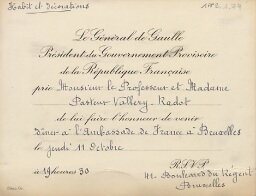 Habit et Décorations
Le Général de Gaulle
Président du Gouvernement Provisoire
de la République Française
prie Monsieur le Professeur et Madame
Pasteur Vallery-Radot
de lui faire l'honneur de venir
dîner à l'Ambassade de France à Bruxelles
le jeudi 11 Octobre
à 19 heures 30
R.S.V.P
41 Boulevard du Régent
Bruxelles